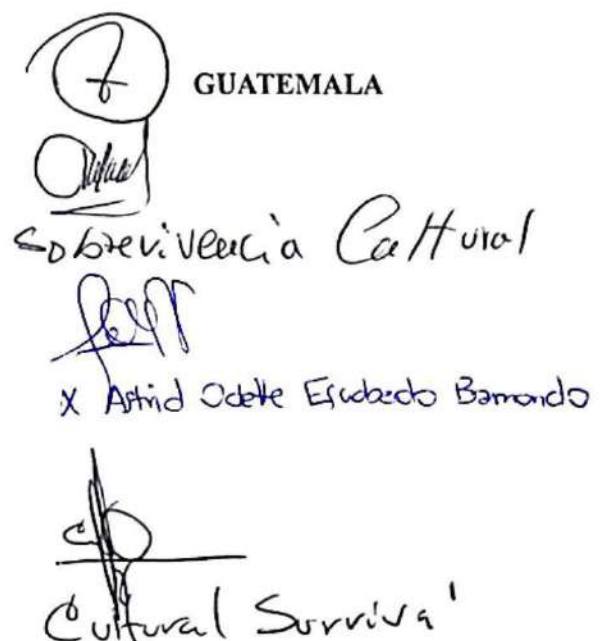 GUATEMALA
Sobrevivencia Cultural
X Astrid Odette Escobedo Barrondo
Cultural Survival